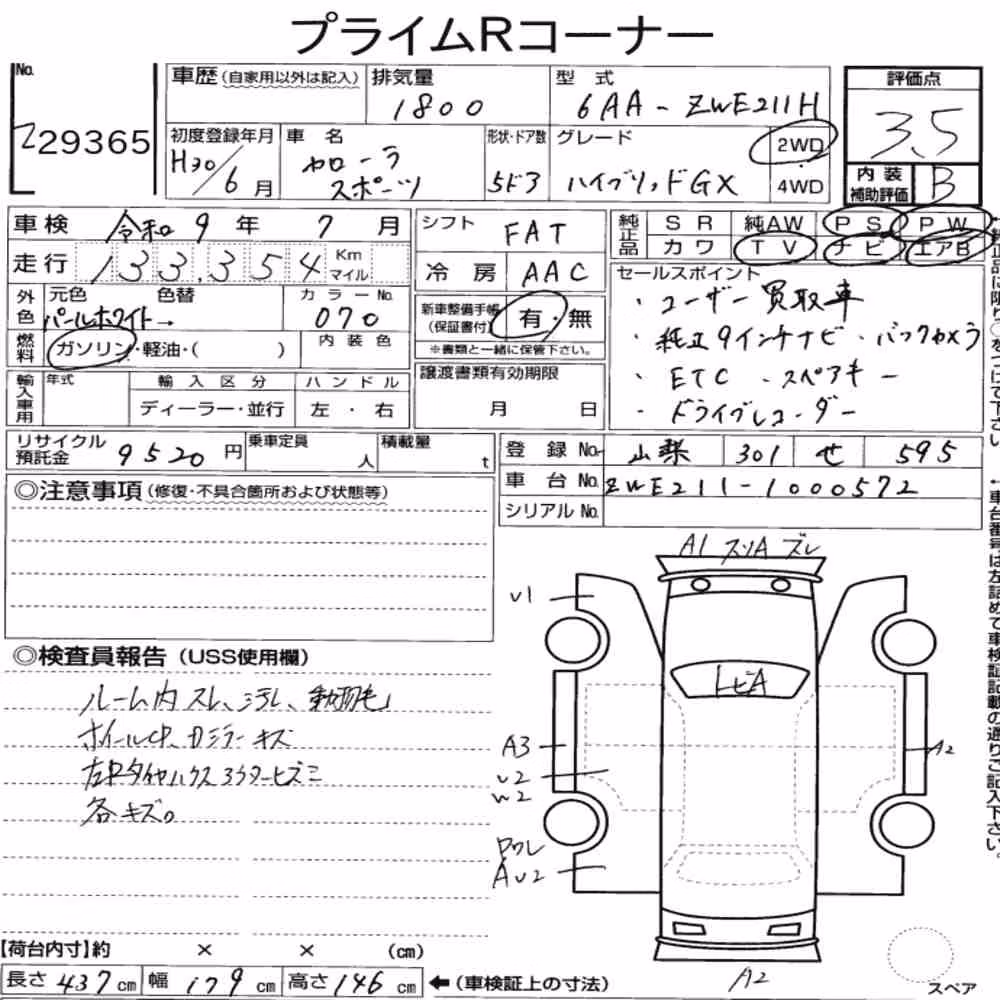 プライムRコーナー
No.
Z29365
車歴(自家用以外は記入)
排気量
1800
型式
6AA-ZWE211H
評価点
3.5
初度登録年月
H30/6月
車名
カローラ
スポーツ
形状・ドア数
5ドア
グレード
ハイブリッドGX
2WD
・
4WD
内装
補助評価
B
車検 令和9年 7月
走行 133,354 Km マイル
シフト
FAT
冷房 AAC
純正品
SR 純AW PS PW
カワ TV ナビ エアB
外色
元色 色替
パールホワイト→
カラーNo.
070
燃料
ガソリン・軽油・( )
内装色
新車整備手帳
(保証書付)
有・無
※書類と一緒に保管下さい。
セールスポイント
・ユーザー買取車
・純正9インチナビ・バックカメラ
・ETC ・スペアキー
・ドライブレコーダー
輸入車用
年式
輸入区分
ディーラー・並行
ハンドル
左・右
譲渡書類有効期限
月 日
リサイクル
預託金
9520円
乗車定員
人
積載量
t
登録No. 山梨 301 せ 595
車台No. ZWE211-1000572
シリアルNo.
◎注意事項(修復・不具合箇所および状態等)
◎検査員報告(USS使用欄)
ルーム内スレ、汚れ、動物毛
各キズ。
A1 スリA ズレ
U1
トビA
A3
U2
W2
A2
AU2
A2
スペア
【荷台内寸】約 × × (cm)
長さ 437cm 幅 179cm 高さ 146cm ←(車検証上の寸法)